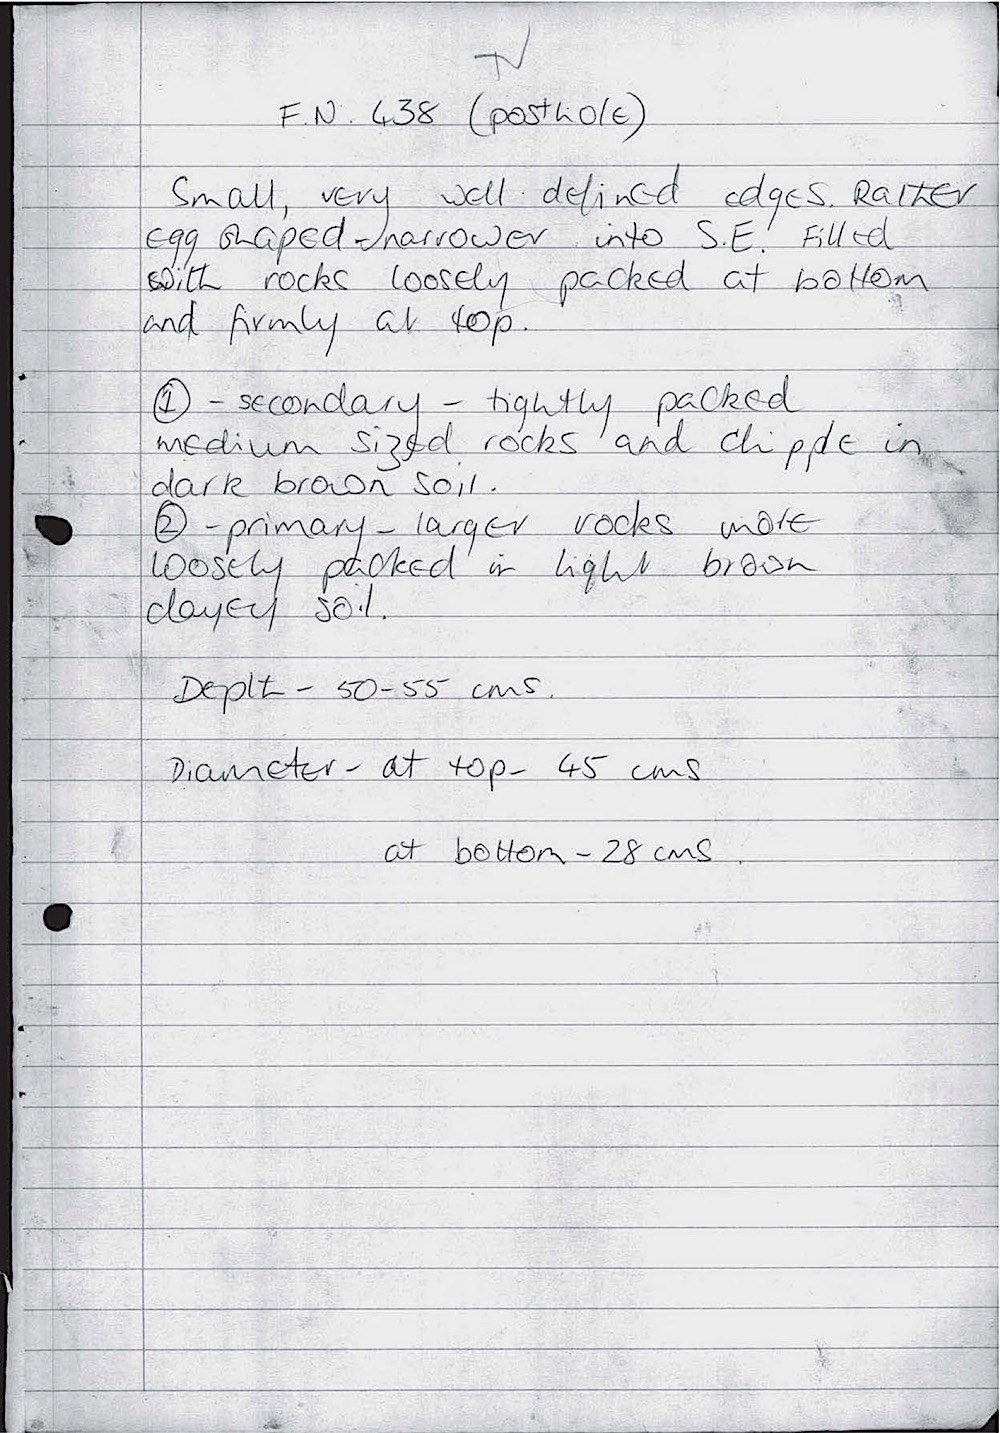 F.N. 438 (posthole)
Small, very well defined edges. Rather
egg shaped - narrower into S.E. Filled
with rocks loosely packed at bottom
and firmly at top.
① - secondary - tightly packed
medium sized rocks and chipple in
dark brown soil.
② - primary - larger rocks more
loosely packed in light brown
clayey soil.
Depth - 50-55 cms.
Diameter - at top - 45 cms
at bottom - 28 cms.